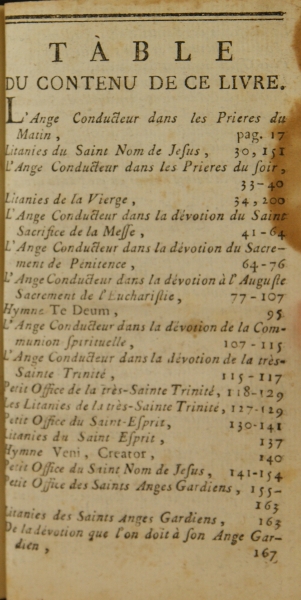 TÀBLE
DU CONTENU DE CE LIVRE.
L'Ange Conducteur dans les Prieres du
Matin, pag. 17
Litanies du Saint Nom de Jesus, 30, 151
L'Ange Conducteur dans les Prieres du soir,
33-40
Litanies de la Vierge, 34, 200
L'Ange Conducteur dans la dévotion du Saint
Sacrifice de la Messe, 41-64
L'Ange Conducteur dans la dévotion du Sacre-
ment de Pénitence, 64-76
L'Ange Conducteur dans la dévotion à l'Auguste
Sacrement de l'Eucharistie, 77-107
Hymne Te Deum, 95
L'Ange Conducteur dans la dévotion de la Com-
munion spirituelle, 107-115
L'Ange Conducteur dans la dévotion de la très-
Sainte Trinité, 115-117
Petit Office de la très-Sainte Trinité, 118-129
Les Litanies de la très-Sainte Trinité, 127-129
Petit Office du Saint-Esprit, 130-141
Litanies du Saint Esprit, 137
Hymne Veni, Creator, 140
Petit Office du Saint Nom de Jesus, 141-154
Petit Office des Saints Anges Gardiens, 155-
163
Litanies des Saints Anges Gardiens, 163
De la dévotion que l'on doit à son Ange Gar-
dien, 167